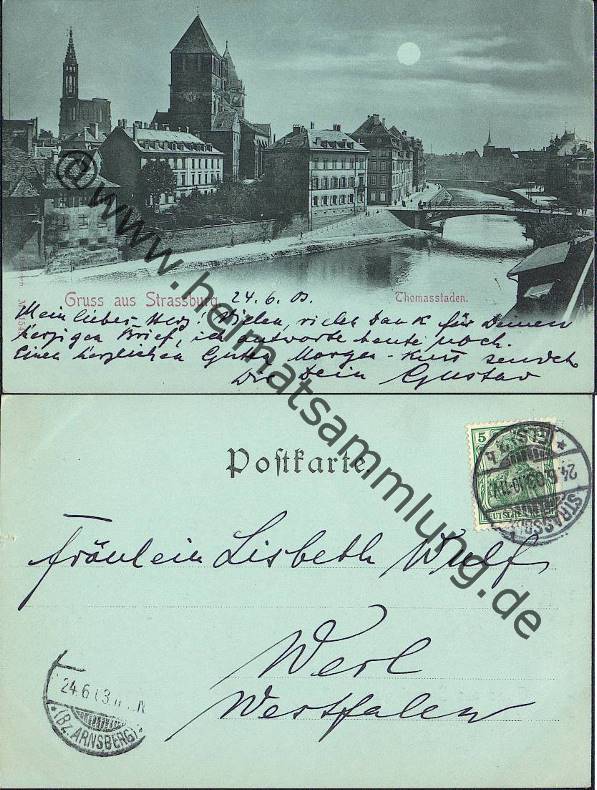 Gruss aus Strassburg. 24.6.03. Thomasstaden.
Mein lieber Herz! Vielen, vielen Dank für Deinen
herzigen Brief, ich antworte heute noch.
Einen herzlichen Guten Morgen-Kuss sendet
Dir Dein Gustav
@www.heimatsammlung.de
Postkarte.
5
STRASSBURG
(ELS.)
24.6.03.10-11V.
Fräulein Lisbeth Wulf
Werl
Westfalen
24.6.03
(Bz. ARNSBERG)